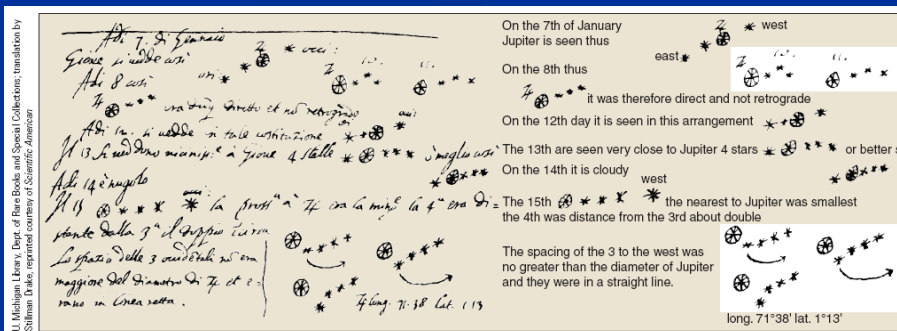 U. Michigan Library, Dept. of Rare Books and Special Collections; translation by
Stillman Drake, reprinted courtesy of Scientific American
Adi 7. di Gennaio
Giove si vedde così
Adi 8 così
era dunq diretto et nò retrogrado
Adi 12. si vedde in tale costituzione
Il 13 si veddono à Giove 4 stelle
ò meglio così
Adi 14 è nugolo
Il 15
la pross.ª à 4 era la min.ª la 4.ª era di=
stante dalla 3.ª il doppio
Lo spazio delle 3 occidentali nò era
maggiore del diametro di 4 et e=
rano in linea retta.
long. 71.38 lat. 1.13
On the 7th of January
Jupiter is seen thus
west
east
On the 8th thus
it was therefore direct and not retrograde
On the 12th day it is seen in this arrangement
The 13th are seen very close to Jupiter 4 stars
or better s
On the 14th it is cloudy
west
The 15th
the nearest to Jupiter was smallest
the 4th was distance from the 3rd about double
The spacing of the 3 to the west was
no greater than the diameter of Jupiter
and they were in a straight line.
long. 71°38' lat. 1°13'